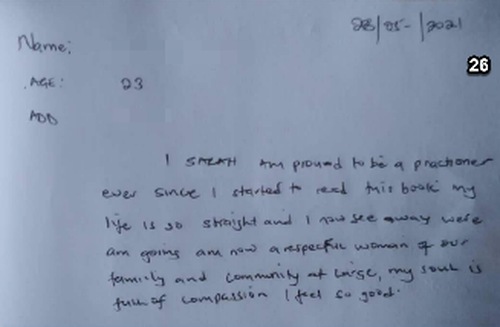 28/05-/2021
Name:
26
AGE: 23
ADD
I SARAH am proud to be a practioner
ever since I started to read this book my
life is so straight and I now see away were
am going am now a respecful woman of our
family and community at large, my soul is
full of compassion I feel so good.